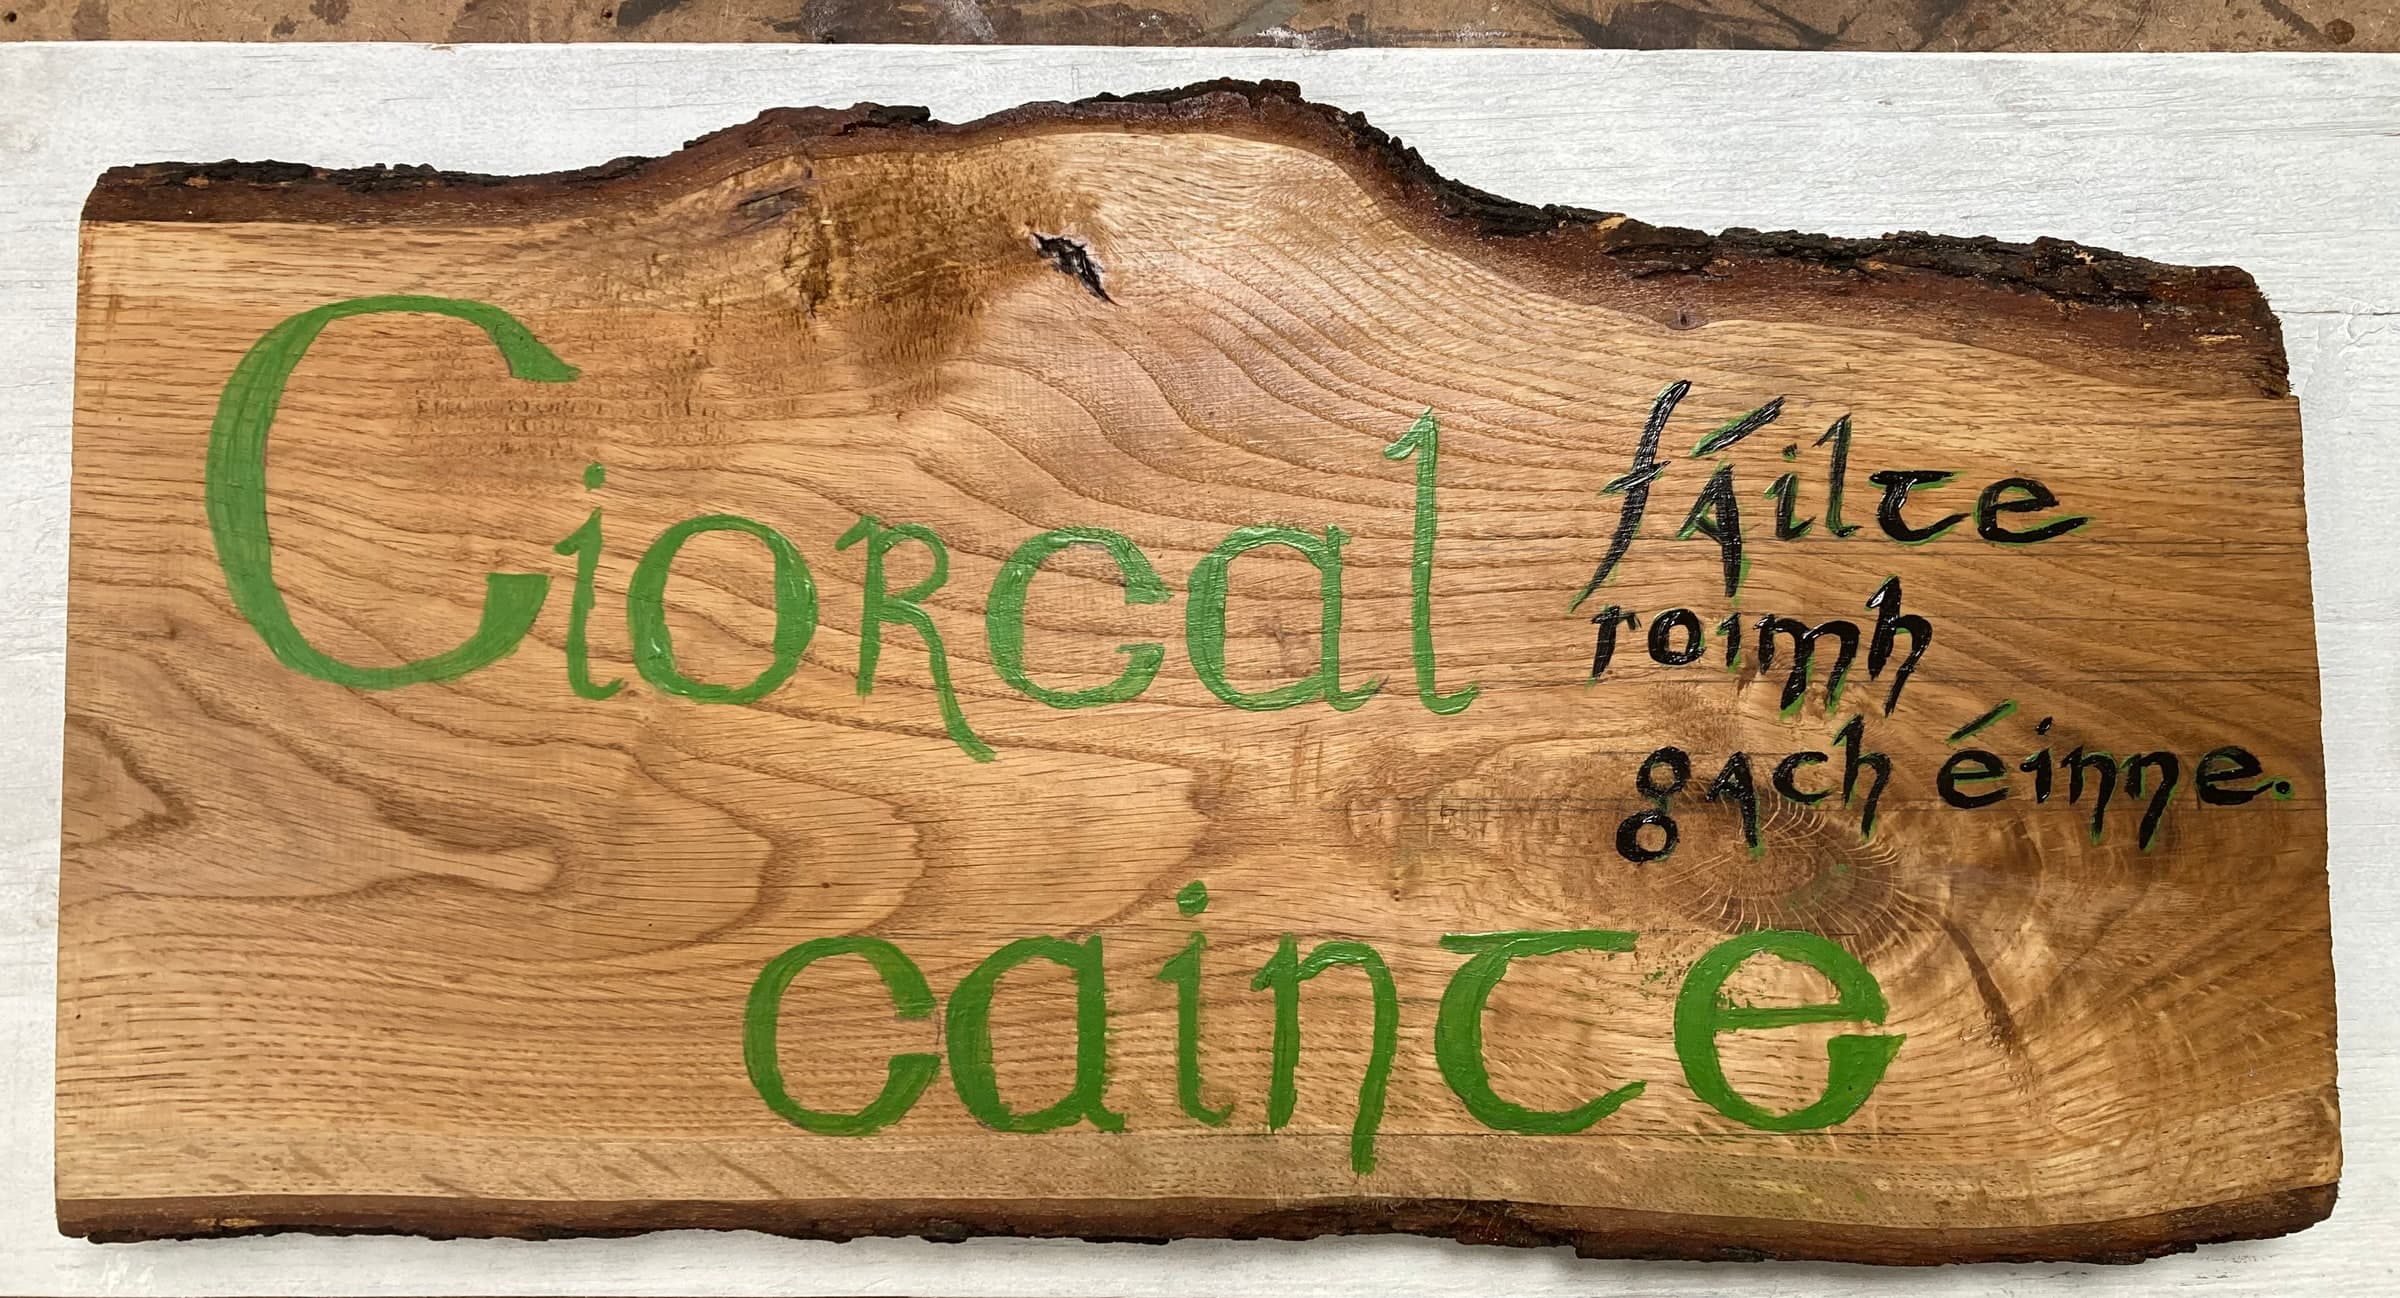 Ciorcal
fáilte
roimh
gach éinne.
cainte